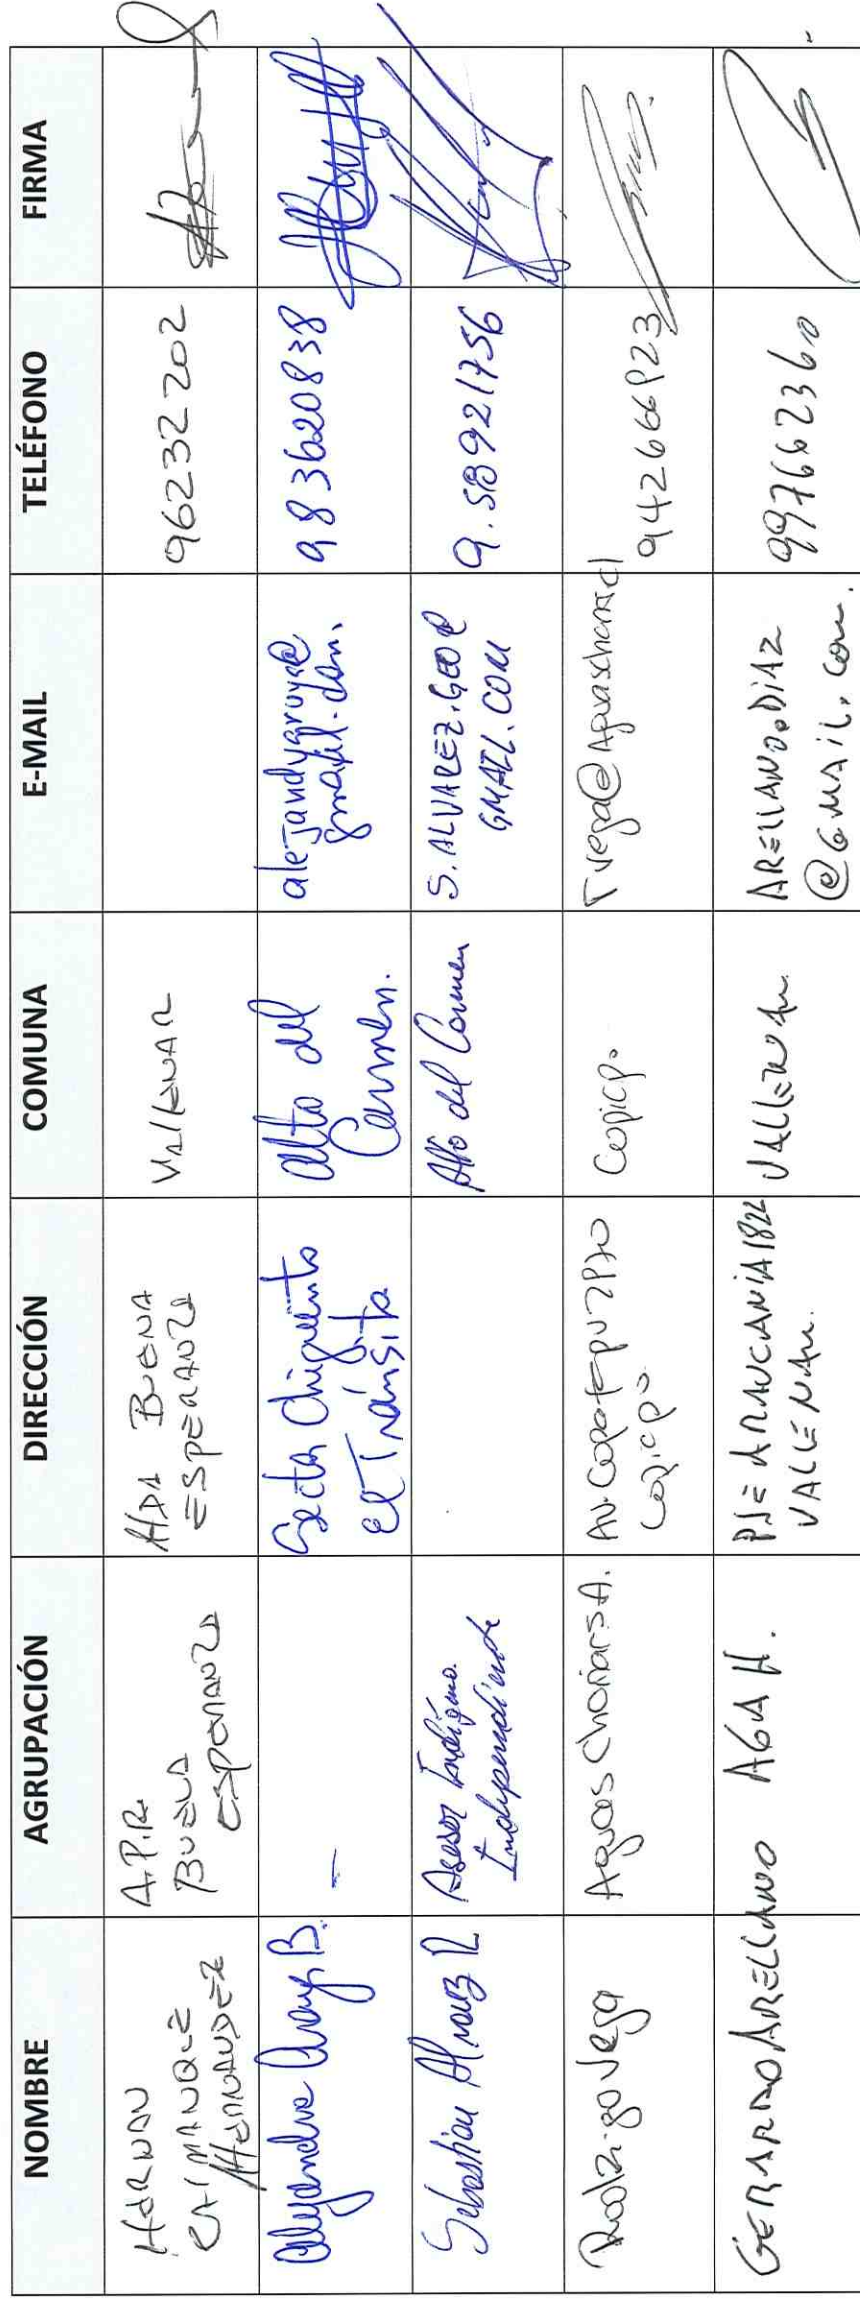 NOMBRE AGRUPACIÓN DIRECCIÓN COMUNA E-MAIL TELÉFONO FIRMA
HERNAN
CAIMANQUE
HERNANDEZ
A.P.R.
BUENA
ESPERANZA
HDA BUENA
ESPERANZA
VALLENAR
96232202
Alejandra Araya B.
—
Sector Chiguinto
El Tránsito
Alto del
Carmen.
alejandyaruyse@
gmail.com.
983620838
Sebastian Alvarez R
Asesor Indígena
Independiente
Alto del Carmen
S.ALVAREZ.GEO@
GMAIL.COM
9.58921756
Rodrigo Vega
Aguas Chañar S.A.
Av. Copayapu
Copiapo.
Copiapo.
rvega@aguaschanar.cl
GERARDO ARELLANO
AGA H.
PJE ARAUCANIA 1822
VALLENAR.
VALLENAR
ARELLANO.DIAZ
@GMAIL.COM.
997662360